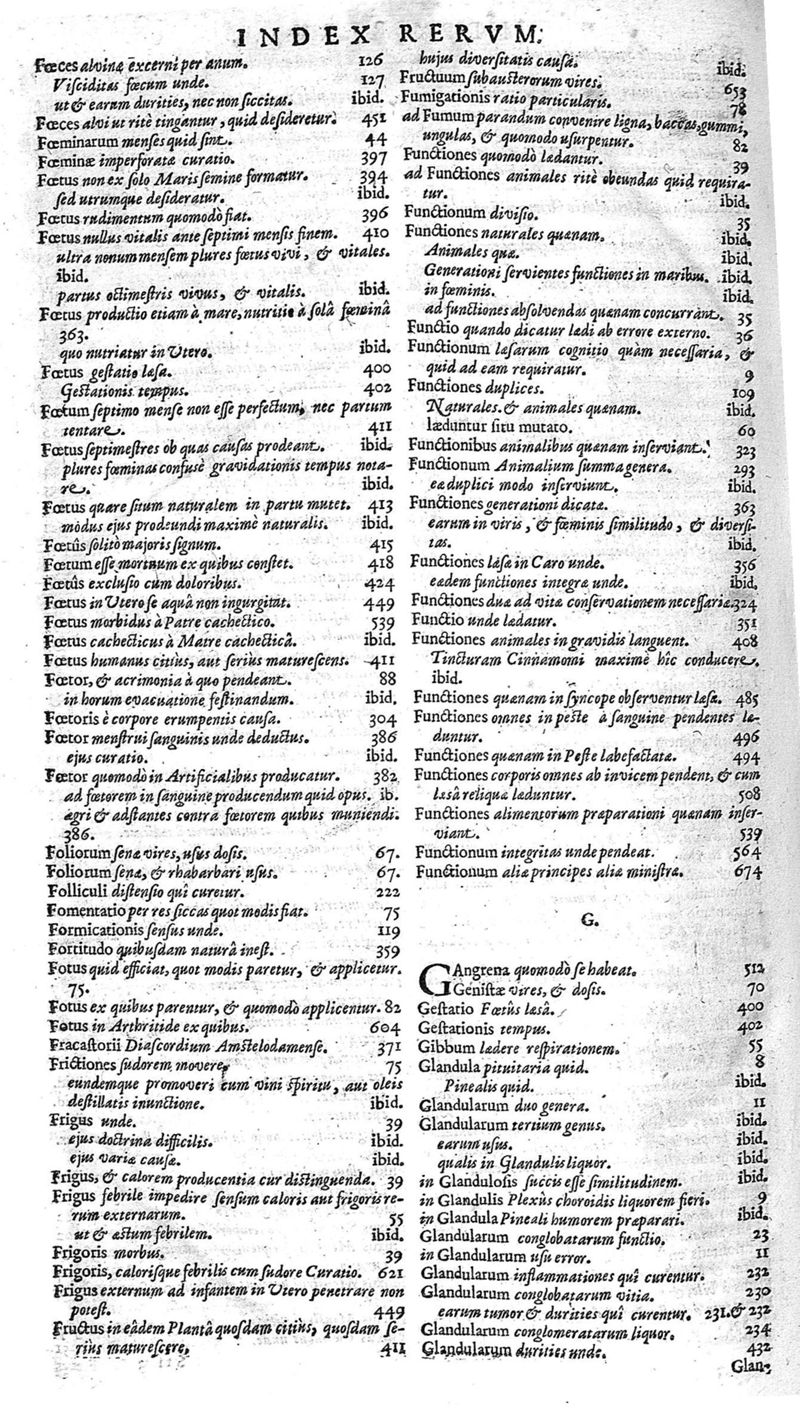 INDEX RERVM.
Fœces alvinæ excerni per anum. 126
Visciditas fœcum unde. 127
ut & earum durities, nec non siccitas. ibid.
Fœces alvi ut ritè tingantur, quid desideretur. 451
Fœminarum menses quid sint. 44
Fœminæ imperforatæ curatio. 397
Fœtus non ex solo Maris semine formatur. 394
sed utrumque desideratur. ibid.
Fœtus rudimentum quomodo fiat. 396
Fœtus nullus vitalis ante septimi mensis finem. 410
ultra nonum mensem plures fœtus vivi, & vitales.
ibid.
partus octimestris vivus, & vitalis. ibid.
Fœtus productio etiam à mare, nutritio à solâ fœminâ
363.
quo nutriatur in Utero. ibid.
Fœtus gestatio læsa. 400
Gestationis tempus. 402
Fœtum septimo mense non esse perfectum, nec partum
tentare. 411
Fœtus septimestres ob quas causas prodeant. ibid.
plures fœminas confusè gravidationis tempus nota-
re. ibid.
Fœtus quare situm naturalem in partu mutet. 413
modus ejus prodeundi maximè naturalis. ibid.
Fœtûs solitò majoris signum. 415
Fœtum esse mortuum ex quibus constet. 418
Fœtûs exclusio cum doloribus. 424
Fœtus in Utero se aquâ non ingurgitat. 449
Fœtus morbidus à Patre cachectico. 539
Fœtus cachecticus à Matre cachecticâ. ibid.
Fœtus humanus citiùs, aut seriùs maturescens. 411
Fœtor, & acrimonia à quo pendeant. 88
in horum evacuatione festinandum. ibid.
Fœtoris è corpore erumpentis causa. 304
Fœtor menstrui sanguinis unde deductus. 386
ejus curatio. ibid.
Fœtor quomodo in Artificialibus producatur. 382
ad fœtorem in sanguine producendum quid opus. ib.
ægri & adstantes contra fœtorem quibus muniendi.
386.
Foliorum senæ vires, usus dosis. 67.
Foliorum senæ, & rhabarbari usus. 67.
Folliculi distensio quî curetur. 222
Fomentatio per res siccas quot modis fiat. 75
Formicationis sensus unde. 119
Fortitudo quibusdam naturâ inest. 359
Fotus quid efficiat, quot modis paretur, & applicetur.
75.
Fotus ex quibus parentur, & quomodò applicentur. 82
Fotus in Arthritide ex quibus. 604
Fracastorii Diascordium Amstelodamense. 371
Frictiones sudorem movere, 75
eundemque promoveri cum vini spiritu, aut oleis
destillatis inunctione. ibid.
Frigus unde. 39
ejus doctrina difficilis. ibid.
ejus variæ causæ. ibid.
Frigus, & calorem producentia cur distinguenda. 39
Frigus febrile impedire sensum caloris aut frigoris re-
rum externarum. 55
ut & æstum febrilem. ibid.
Frigoris morbus. 39
Frigoris, calorisque febrilis cum sudore Curatio. 621
Frigus externum ad infantem in Utero penetrare non
potest. 449
Fructus in eâdem Plantâ quosdam citiùs, quosdam se-
riùs maturescere, 411
hujus diversitatis causa. ibid.
Fructuum subausterorum vires. 653
Fumigationis ratio particularis. 78
ad Fumum parandum convenire ligna, baccas, gummi,
ungulas, & quomodo usurpentur. 82
Functiones quomodò lædantur. 39
ad Functiones animales ritè obeundas quid requira-
tur. ibid.
Functionum divisio. 35
Functiones naturales quænam. ibid.
Animales quæ. ibid.
Generationi servientes functiones in maribus. ibid.
in fœminis. ibid.
ad functiones absolvendas quænam concurrant. 35
Functio quando dicatur lædi ab errore externo. 36
Functionum læsarum cognitio quàm necessaria, &
quid ad eam requiratur. 9
Functiones duplices. 109
Naturales & animales quænam. ibid.
læduntur situ mutato. 60
Functionibus animalibus quænam inserviant. 323
Functionum Animalium summa genera. 293
ea duplici modo inserviunt. ibid.
Functiones generationi dicatæ. 363
earum in viris, & fœminis similitudo, & diversi-
tas. ibid.
Functiones læsæ in Caro unde. 356
eædem functiones integræ unde. ibid.
Functiones duæ ad vitæ conservationem necessariæ 324
Functio unde lædatur. 351
Functiones animales in gravidis languent. 408
Tincturam Cinnamomi maximè hîc conducere.
ibid.
Functiones quænam in syncope observentur læsæ. 485
Functiones omnes in peste à sanguine pendentes læ-
duntur. 496
Functiones quænam in Peste labefactatæ. 494
Functiones corporis omnes ab invicem pendent, & cum
læsâ reliquæ læduntur. 508
Functiones alimentorum præparationi quænam inser-
viant. 539
Functionum integritas unde pendeat. 564
Functionum aliæ principes aliæ ministræ. 674
G.
GAngrena quomodò se habeat. 512
Genistæ vires, & dosis. 70
Gestatio Fœtûs læsâ. 400
Gestationis tempus. 402
Gibbum lædere respirationem. 55
Glandula pituitaria quid. 8
Pinealis quid. ibid.
Glandularum duo genera. 11
Glandularum tertium genus. ibid.
earum usus. ibid.
qualis in Glandulis liquor. ibid.
in Glandulosis succis esse similitudinem. ibid.
in Glandulis Plexùs choroidis liquorem fieri. 9
in Glandula Pineali humorem præparari. ibid.
Glandularum conglobatarum functio. 23
in Glandularum usu error. 11
Glandularum inflammationes quî curentur. 232
Glandularum conglobatarum vitia. 230
earum tumor & durities quî curentur. 231. & 232
Glandularum conglomeratarum liquor. 234
Glandularum durities unde. 432
Glan-